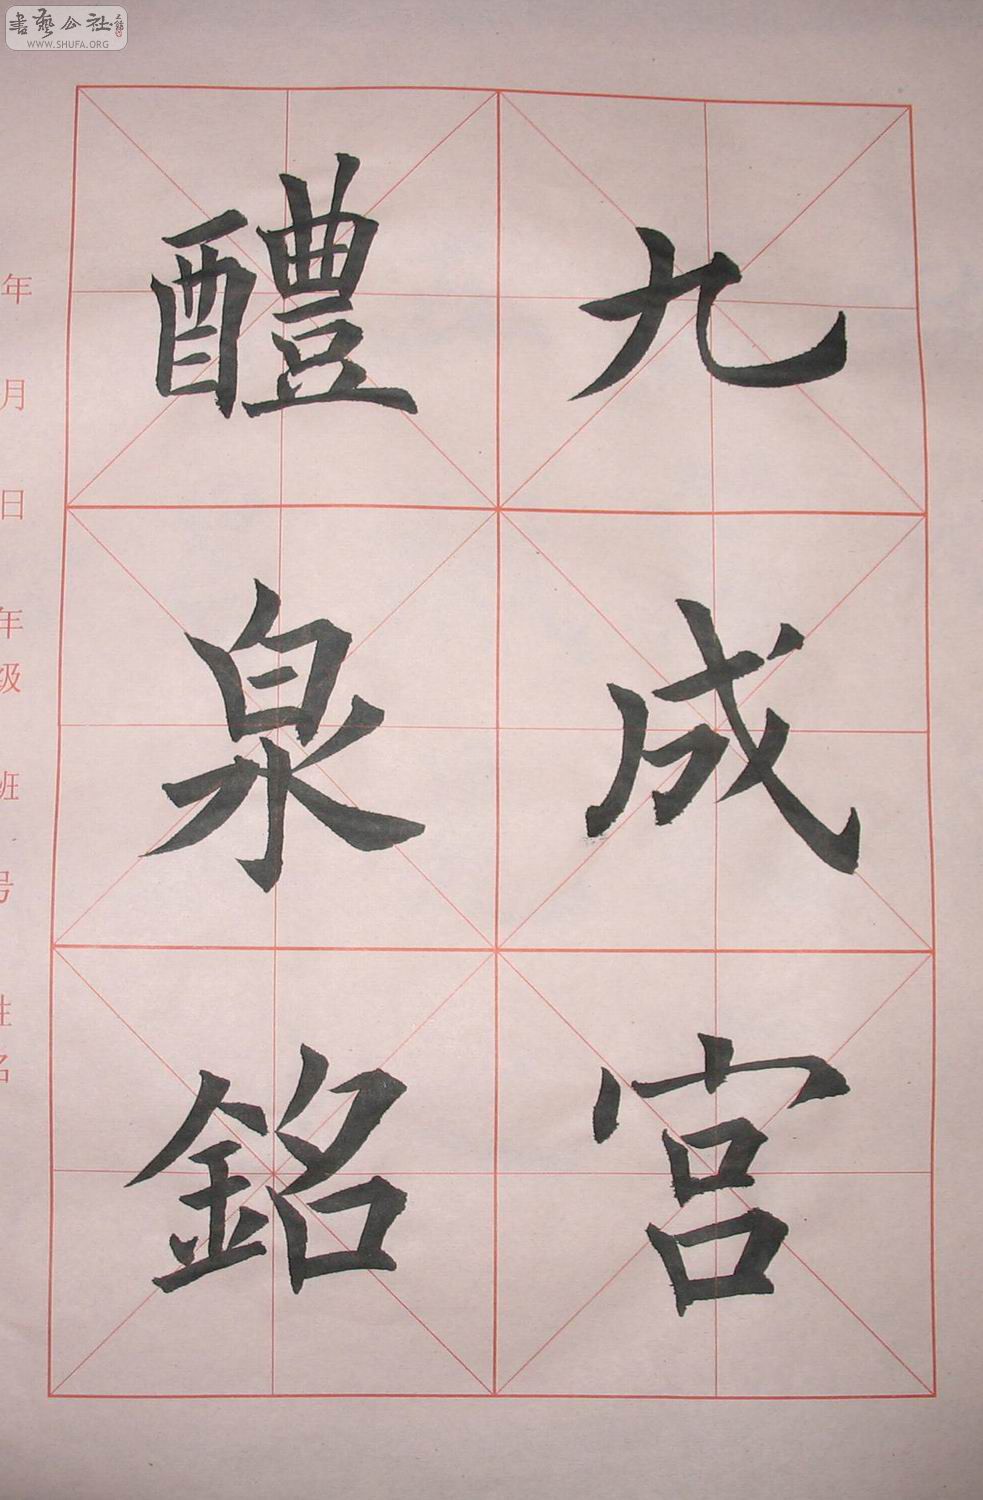 九成宫
醴泉銘
年 月 日 年级 班 号 姓名
書藝公社
WWW.SHUFA.ORG